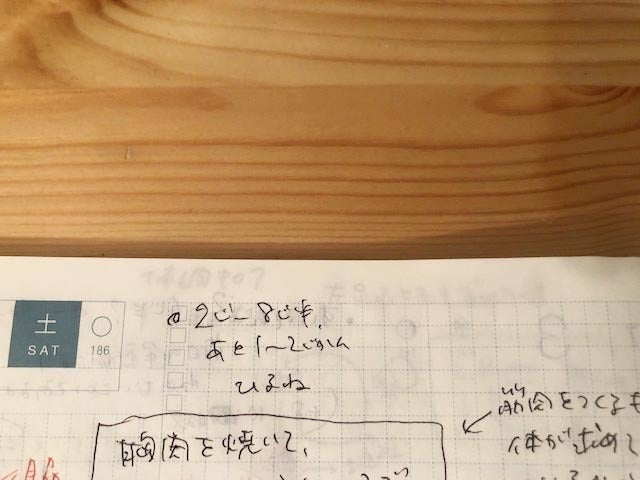 土
SAT
186
2じ〜8じ半、
あと1〜2じかん
ひるね
胸肉を焼いて、
筋肉をつくるも
体が求めて